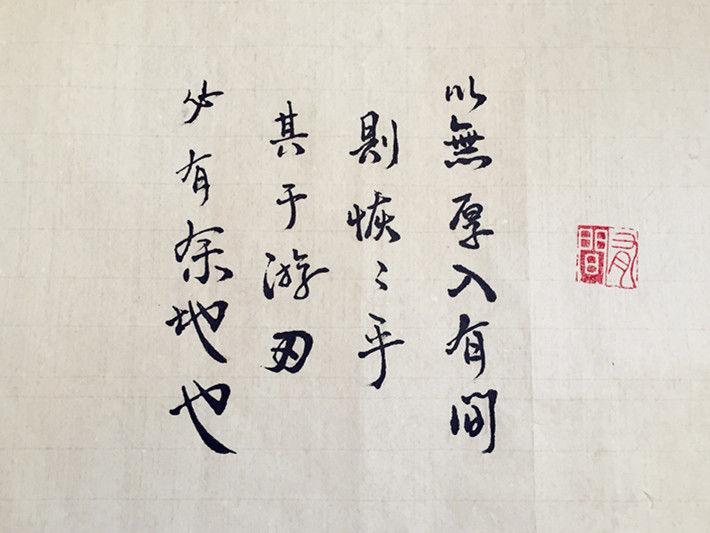 以無厚入有間
則恢〻乎
其于游刃
必有余地也